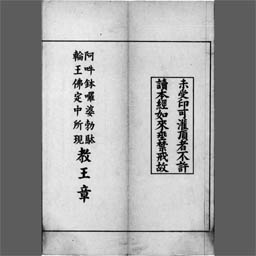 未受印可灌頂者不許
讀本經如來垂禁戒故
阿吽鉢囉婆勃馱
輪王佛定中所現
教王章